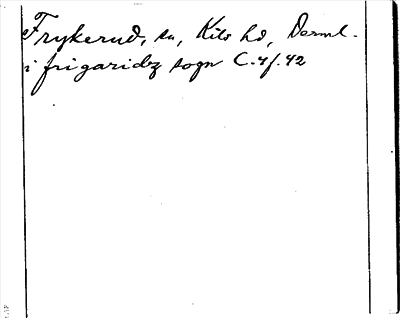 Frykerud, sn, Kils hd, Verml.
i frigaridz sogn C. 4f. 42